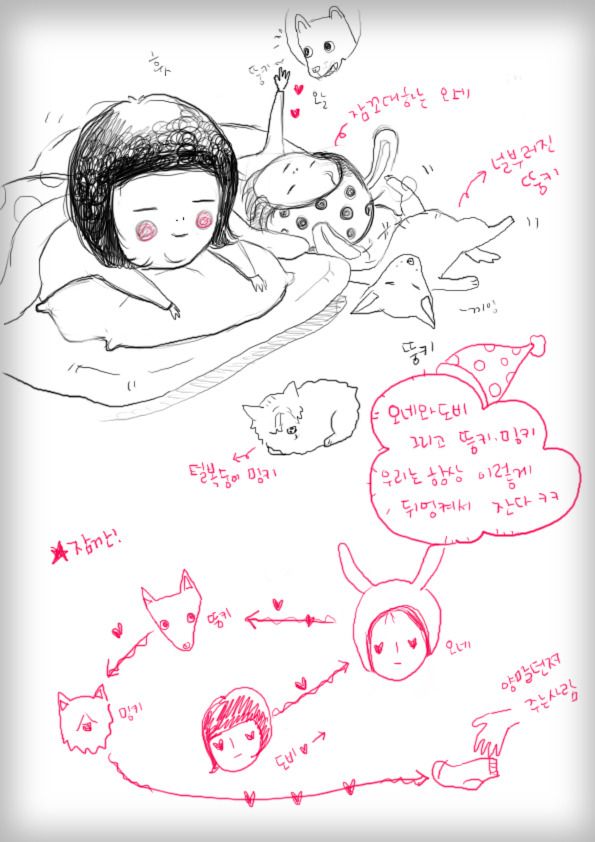 뚱키
오늘
잠꼬대하는 오네
널부러진
뚱키
뚱키
털복숭이 밍키
오네와 도비
그리고 뚱키·밍키
우리는 항상 이렇게
뒤엉켜서 잔다 ㅋㅋ
★잠깐!
뚱키
오네
밍키
도비 ♥ →
양말던져
주는사람